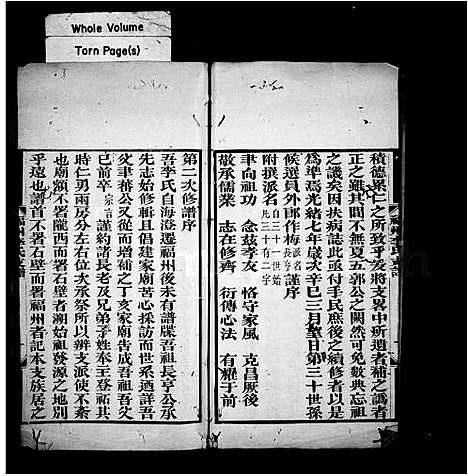 Whole Volume
Torn Page(s)
積德累仁之所致乎爰將支㬰中所遺者補之譌者
正之雖其間不無夏五郭公之闕然可免數典忘祖
之譏矣因扶病誌此亟付手民庶後之續修者以是
為準焉光緒七年歲次辛巳三月望日第三十世孫
候選員外郎作梅謹序
附撰派名 自三十一世始 凡三十有二字
聿向祖功 念茲孝友 恪守家風 克昌厥後
敬承儒業 志在修齊 衍傳心法 有耀于前
第二次修譜序
吾李氏自海澄遷福州後未有譜牒吾祖長亨公承
先志始修輯且倡建家廟苦心採訪而世系迺詳吾
父聿蕃公又從而增補之丁亥家廟告成吾祖吾父
已前卒宗言謹約諸長老及兄弟子姓奉主登祏其
時仁男兩房分左右位次承祭所以辨支派使不紊
也廟額不署隴西而署石壁者溯始祖發源之地別
乎遠也譜首不署石壁而署福州者記本支族居之